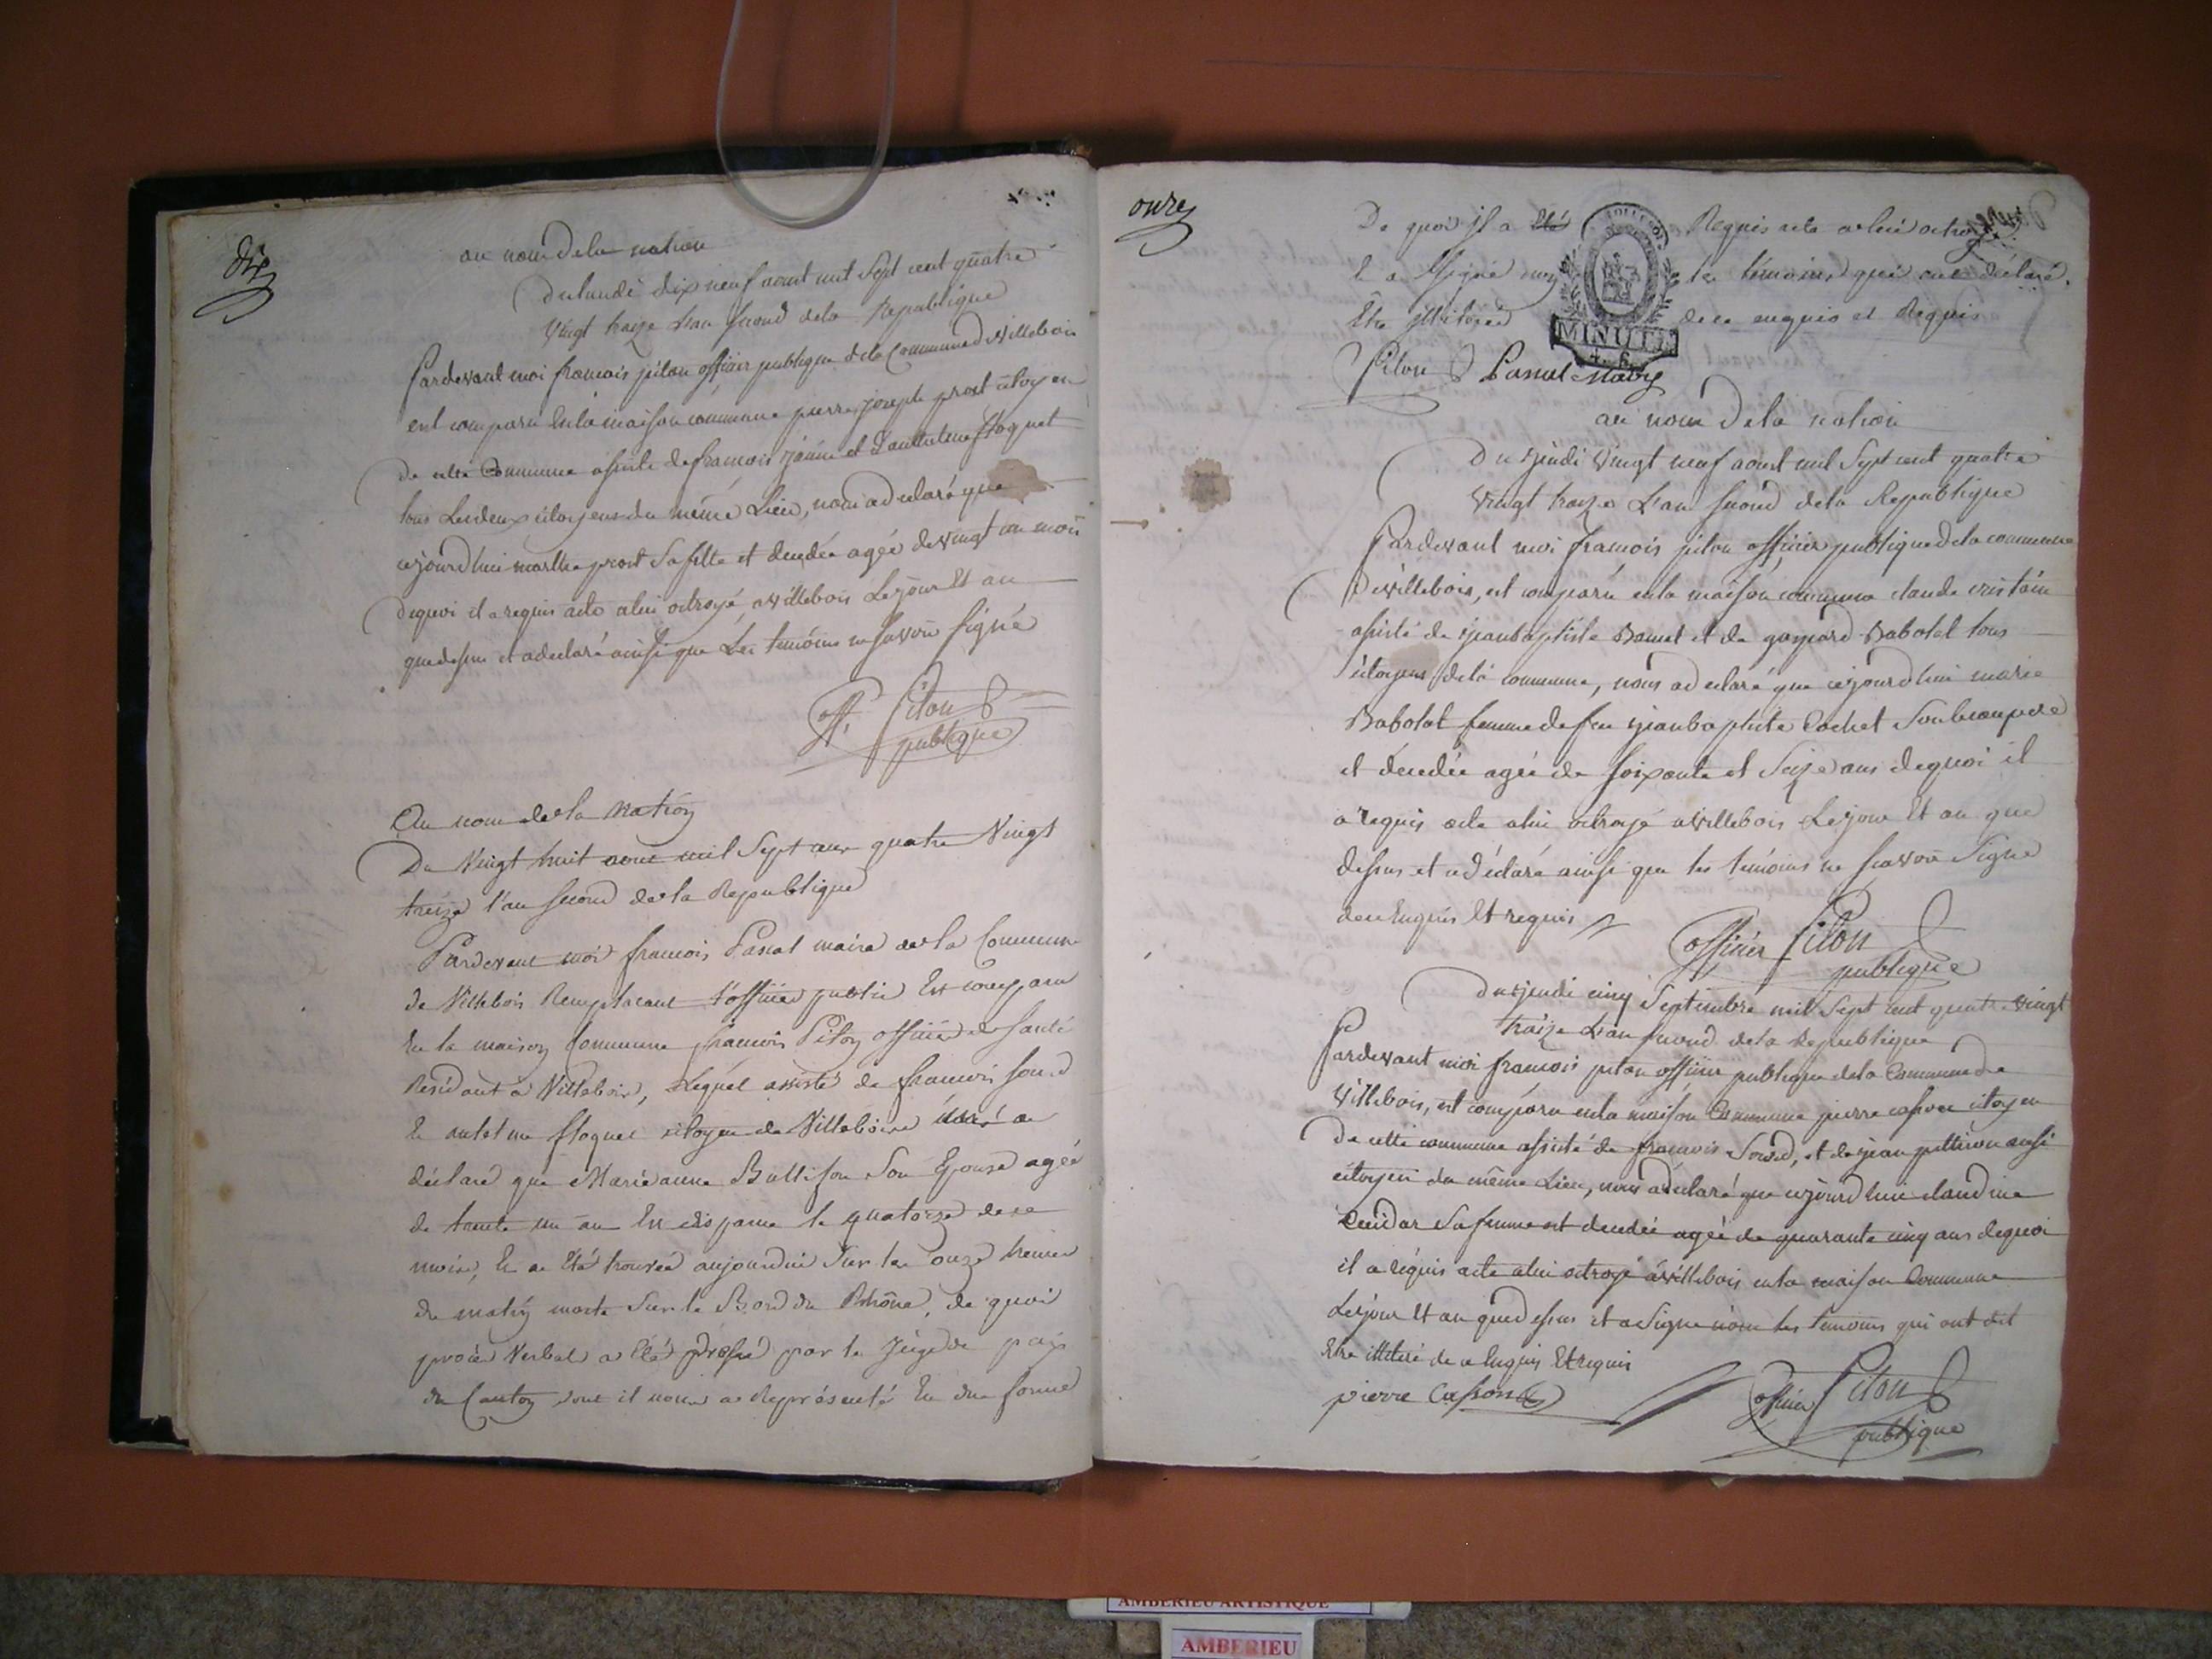 dix
au nom de la nation
du lundi dix neuf aout mil sept cent quatre
vingt treize l'an second dela Republique
pardevant moi francois pilon officier publique dela Commune de villebois
est comparu en la maison commune pierre joseph prost citoyen
de cette Commune assisté de francois et d'antelme floquet
tous les deux citoyens du même Lieu, nous a declaré que
cejourdhui marthe prost sa fille est decedée agée de vingt un mois
dequoi il a requis acte a lui octroyé, a villebois le jour et an
que dessus et a declaré ainsi que les temoins ne savoir signé
off. pilon
publique
Au nom de la Nation
Du Vingt huit aout mil Sept cent quatre Vingt
treize l'an second de la Republique
Pardevant moi francois Pascal maire de la Commune
de Villebois Remplacant l'officier public Est comparu
En la maison Commune francois Pilon officier de santé
Residant a Villebois, Lequel assisté de francois sourd
Et antelme floquet citoyen de Villebois a
déclaré que Marieanne Bullifon son Epouse agée
de trente un an Est disparue le quatorze de ce
mois, Et a Eté trouvée aujourdhui sur les onze heures
du matin morte sur le Bord du Rhône, de quoi
procès Verbal a Eté dressé par le Juge de paix
du Canton dont il nous a Représenté En due forme
onze
De quoi il a Eté Requis acte a lui octroyé
Et a signé non les témoins qui ont déclaré
Etre illiterés de ce enquis et Requis
Pilon Pascal Maire
MINUTE
au nom dela nation
Du jeudi vingt neuf aoust mil Sept cent quatre
vingt treize L'an second dela Republique
Pardevant moi francois pilon officier publique dela commune
De villebois, est comparu en la maison commune claude
assisté de jeanbaptiste Bonnet et de gaspard Babolat tous
citoyens dela commune, nous a declaré que cejourdhui marie
Babolat femme de feu jeanbaptiste Cochet son beaupere
est decedée agée de soixante et seize ans dequoi il
a requis acte a lui octroyé a villebois Le jour Et an que
dessus et a déclaré ainsi que les temoins ne scavoir signe
de ce Enquis Et requis
officier pilon
publique
Du jeudi cinq Septembre mil Sept cent quatre vingt
treize L'an second dela Republique
Pardevant moi francois pilon officier publique dela Commune de
villebois, est comparu en la maison Commune pierre casson citoyen
De cette commune assisté de francois Sourd, et de jean aussi
citoyen du même Lieu, nous a declaré que cejourdhui claudine
sa femme est decedée agée de quarante cinq ans dequoi
il a requis acte a lui octroyé a villebois en la maison Commune
Le jour Et an que dessus et a Signe non les temoins qui ont dit
Etre illiteré de ce Enquis Et requis
pierre Casson
officier pilon
publique
AMBERIEU ARTISTIQUE
AMBERIEU